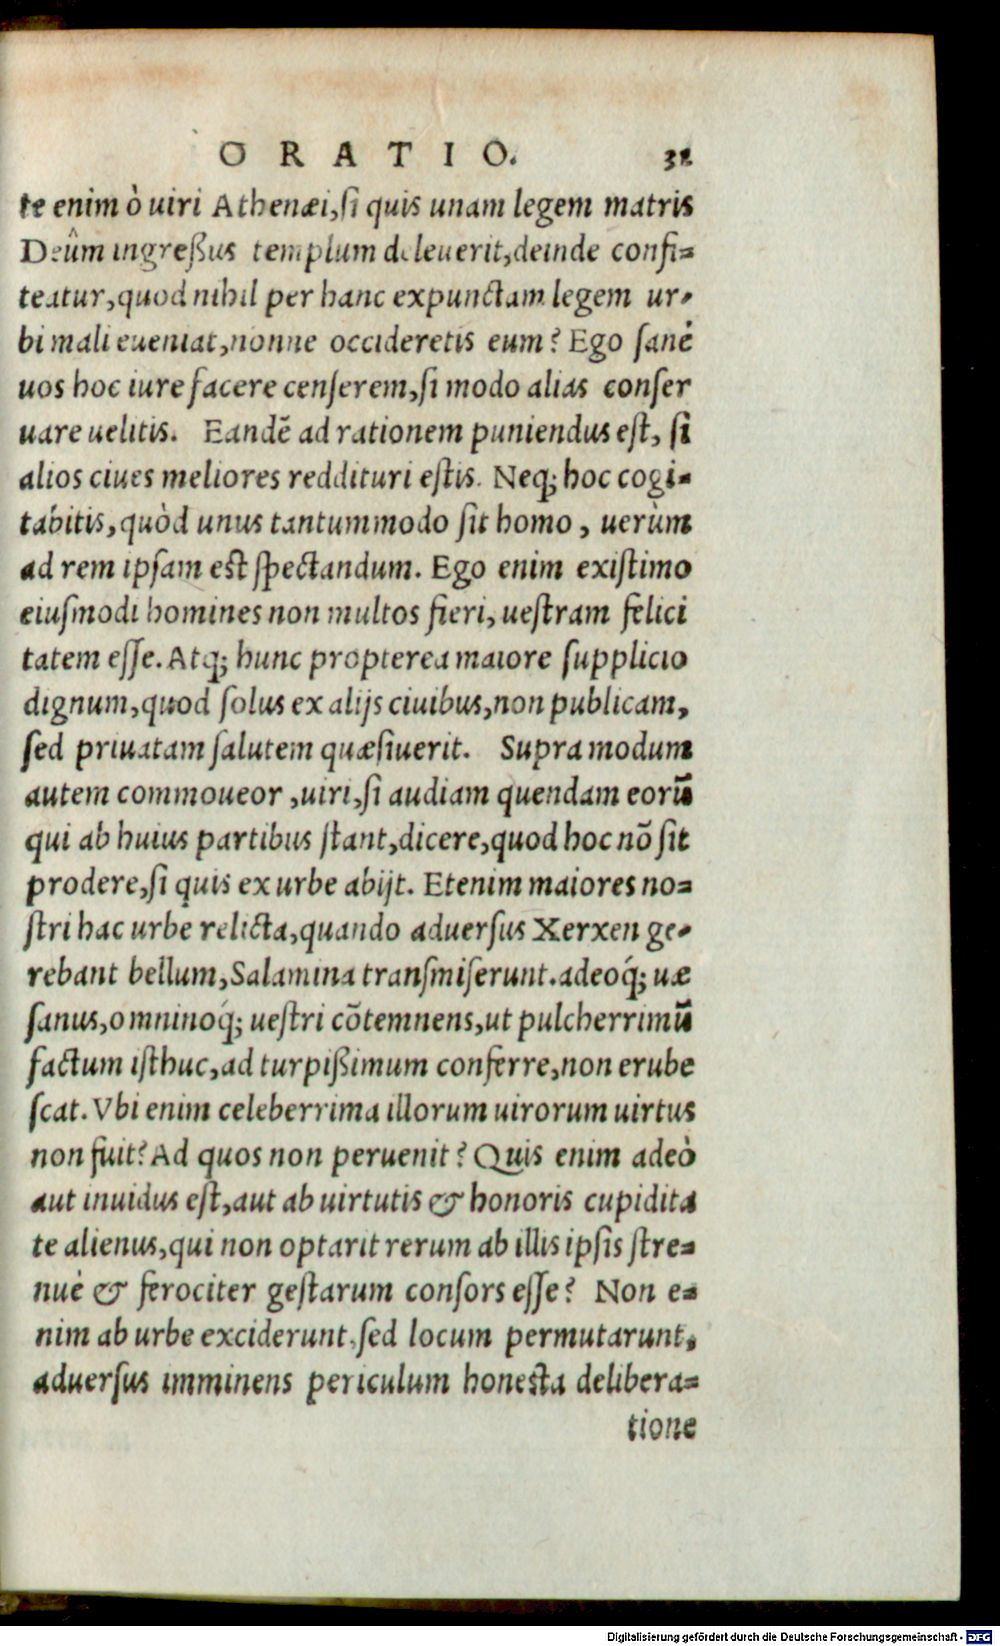 ORATIO. 32
te enim ò uiri Athenæi, si quis unam legem matris
Deûm ingreßus templum deleuerit, deinde confi-
teatur, quod nihil per hanc expunctam legem ur-
bi mali eueniat, nonne occideretis eum? Ego sanè
uos hoc iure facere censerem, si modo alias conser
uare uelitis. Eandē ad rationem puniendus est, si
alios ciues meliores reddituri estis. Neq; hoc cogi-
tabitis, quòd unus tantummodo sit homo, uerùm
ad rem ipsam est spectandum. Ego enim existimo
eiusmodi homines non multos fieri, uestram felici
tatem esse. Atq; hunc propterea maiore supplicio
dignum, quod solus ex alijs ciuibus, non publicam,
sed priuatam salutem quæsiuerit. Supra modum
autem commoueor, uiri, si audiam quendam eorū
qui ab huius partibus stant, dicere, quod hoc nō sit
prodere, si quis ex urbe abijt. Etenim maiores no-
stri hac urbe relicta, quando aduersus Xerxen ge-
rebant bellum, Salamina transmiserunt. adeoq́; uæ
sanus, omninoq́; uestri cōtemnens, ut pulcherrimū
factum isthuc, ad turpißimum conferre, non erube
scat. Vbi enim celeberrima illorum uirorum uirtus
non fuit? Ad quos non peruenit? Quis enim adeò
aut inuidus est, aut ab uirtutis & honoris cupidita
te alienus, qui non optarit rerum ab illis ipsis stre-
nuè & ferociter gestarum consors esse? Non e-
nim ab urbe exciderunt, sed locum permutarunt,
aduersus imminens periculum honesta delibera-
tione
Digitalisierung gefördert durch die Deutsche Forschungsgemeinschaft - DFG